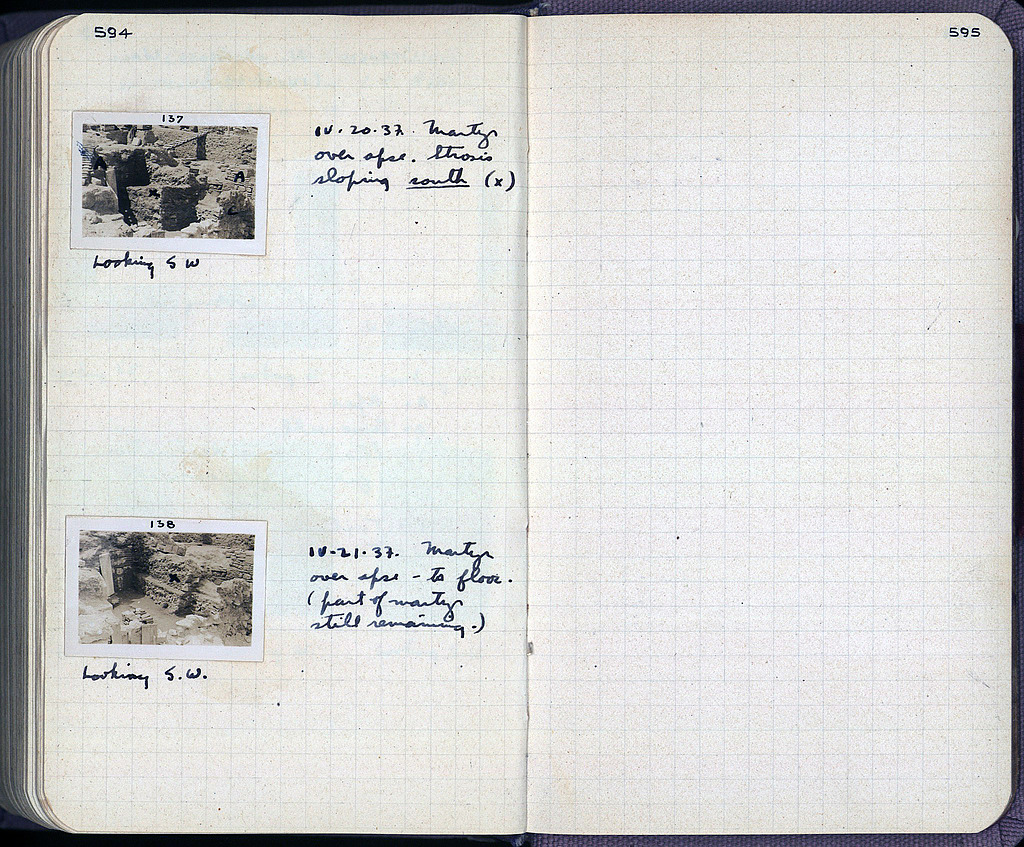 594
137
IV·20·37. Martyr
over apse. Strosis
sloping south (x)
A
A
x
C
Looking S W
138
IV·21·37. Martyr
over apse – to floor.
(part of martyr
still remaining.)
x
Looking S.W.
595